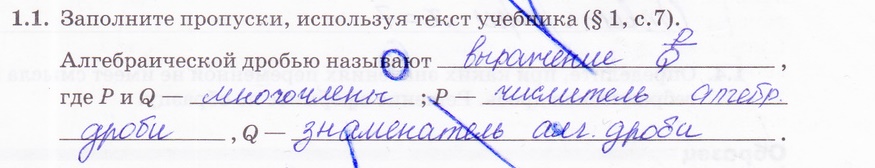 1.1. Заполните пропуски, используя текст учебника (§ 1, с.7).
Алгебраической дробью называют выражение P/Q ,
где P и Q — многочлены ; P — числитель алгебр.
дроби , Q — знаменатель алг. дроби .